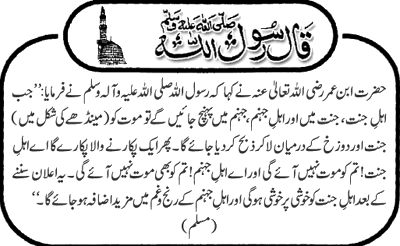 قال رسول اللہ صلی اللہ علیہ وسلم
حضرت ابن عمر رضی اللہ تعالیٰ عنہ نے کہا کہ رسول اللہ صلی اللہ علیہ وآلہ وسلم نے فرمایا: ’’جب
اہل جنت، جنت میں اور اہل جہنم، جہنم میں پہنچ جائیں گے تو موت کو (مینڈھے کی شکل میں)
جنت اور دوزخ کے درمیان لا کر ذبح کر دیا جائے گا۔ پھر ایک پکارنے والا پکارے گا اے اہل
جنت! تم کو موت نہیں آئے گی اور اے اہل جہنم! تم کو بھی موت نہیں آئے گی۔ یہ اعلان سننے
کے بعد اہل جنت کو خوشی پر خوشی ہوگی اور اہل جہنم کے رنج و غم میں مزید اضافہ ہو جائے گا۔‘‘
(مسلم)